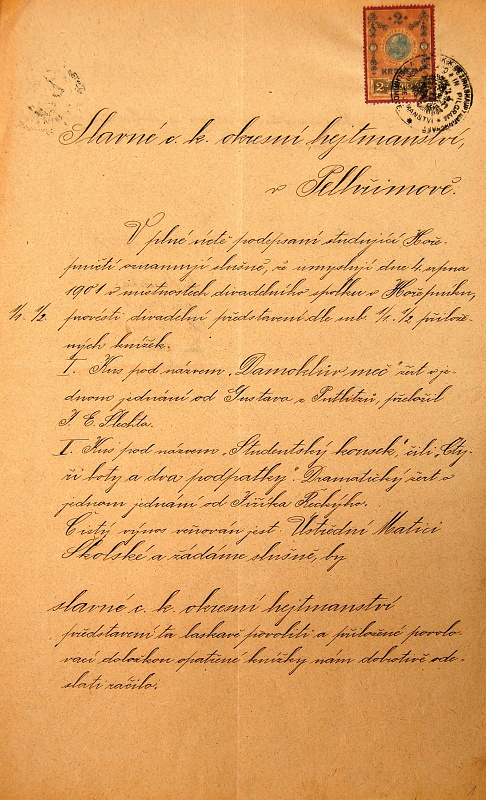 2
Slavné c. k. okresní hejtmanství,
v Pelhřimově.
V plné úctě podepsaní studující Hoře-
pničtí oznamují slušně, že umyslují dne 4. srpna
1901 v místnostech divadelního spolku v Hořepníku,
1/1. 1/2. provésti divadelní představení dle sub. 1/1. 1/2. přilože-
ných knížek.
I. Kus pod názvem „Damoklův meč" žert v je-
dnom jednání od Gustava z Putlitzů, přeložil
J. E. Šlechta.
II. Kus pod názvem „Studentský kousek, čili „Čty-
ři boty a dva podpatky". Dramatický žert v
jednom jednání od Jiříka
Čistý výnos věnován jest Ústřední Matici
Školské a žádáme slušně, by
slavné c. k. okresní hejtmanství
představení ta laskavě povoliti a přiložené povolo-
vací doložkou opatřené knížky nám dobrotivě ode-
slati račilo.